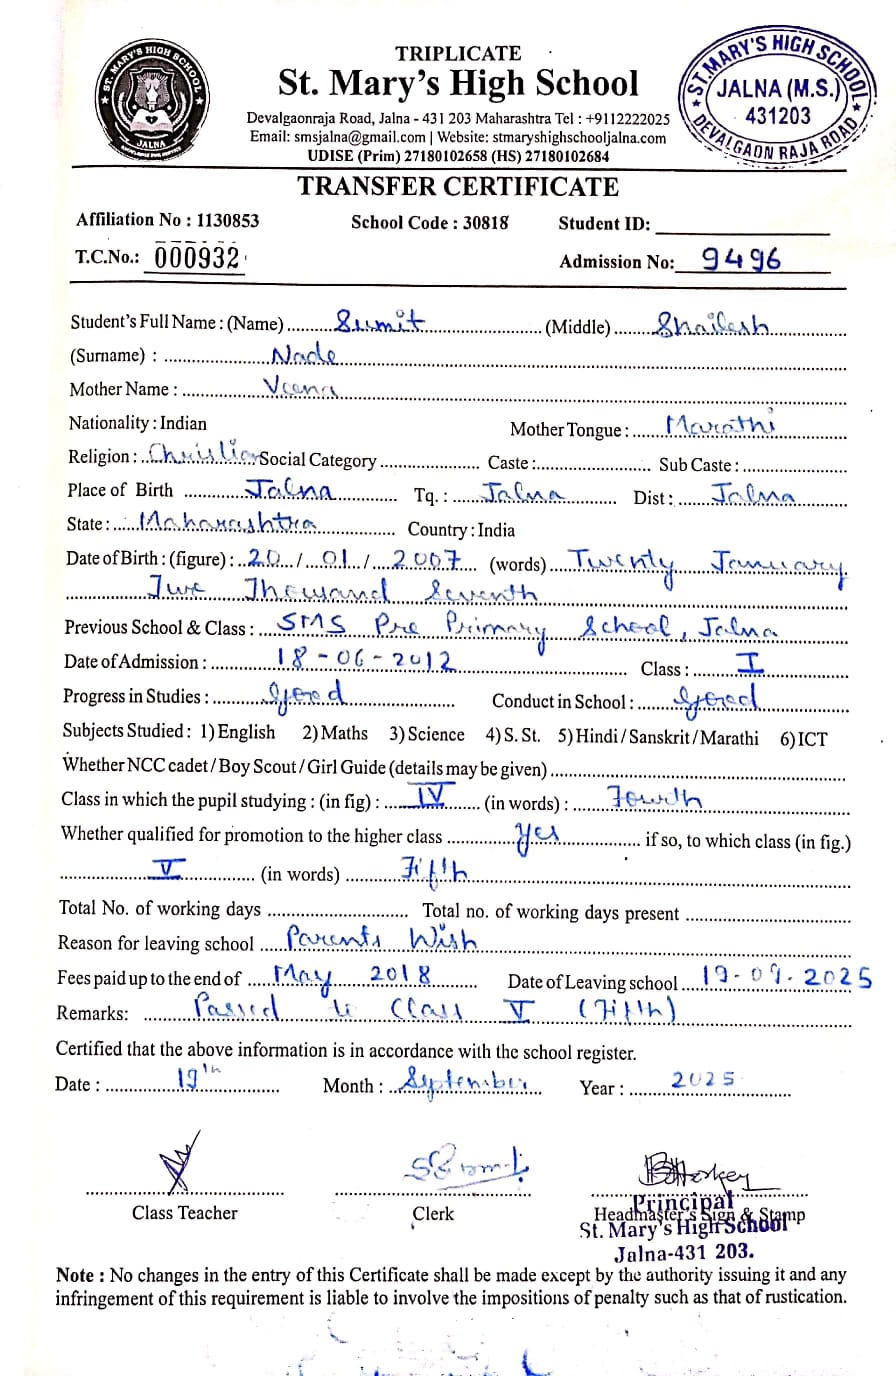 TRIPLICATE
St. Mary's High School
Devalgaonraja Road, Jalna - 431 203 Maharashtra Tel : +9112222025
Email: smsjalna@gmail.com | Website: stmaryshighschooljalna.com
UDISE (Prim) 27180102658 (HS) 27180102684
★ ST. MARY'S HIGH SCHOOL ★
JALNA
★ ST. MARY'S HIGH SCHOOL ★
JALNA (M.S.)
431203
DEVALGAON RAJA ROAD
TRANSFER CERTIFICATE
Affiliation No : 1130853 School Code : 30818 Student ID:
T.C.No.: 000932 Admission No: 9496
Student's Full Name : (Name) Sumit (Middle) Shailesh
(Surname) : Nade
Mother Name : Veena
Nationality : Indian Mother Tongue : Marathi
Religion : Christian Social Category Caste : Sub Caste :
Place of Birth Jalna Tq. : Jalna Dist : Jalna
State : Maharashtra Country : India
Date of Birth : (figure) : 20 / 01 / 2007 (words) Twenty January
Two Thousand Seventh
Previous School & Class : SMS Pre Primary School, Jalna
Date of Admission : 18-06-2012 Class : I
Progress in Studies : Good Conduct in School : Good
Subjects Studied : 1) English 2) Maths 3) Science 4) S. St. 5) Hindi / Sanskrit / Marathi 6) ICT
Whether NCC cadet / Boy Scout / Girl Guide (details may be given)
Class in which the pupil studying : (in fig) : IV (in words) : Fourth
Whether qualified for promotion to the higher class Yes if so, to which class (in fig.)
V (in words) Fifth
Total No. of working days Total no. of working days present
Reason for leaving school Parents Wish
Fees paid up to the end of May 2018 Date of Leaving school 19-09-2025
Remarks: Passed to Class V (Fifth)
Certified that the above information is in accordance with the school register.
Date : 19th Month : September Year : 2025
Class Teacher Clerk Headmaster's Sign & Stamp
Principal
St. Mary's High School
Jalna-431 203.
Note : No changes in the entry of this Certificate shall be made except by the authority issuing it and any
infringement of this requirement is liable to involve the impositions of penalty such as that of rustication.